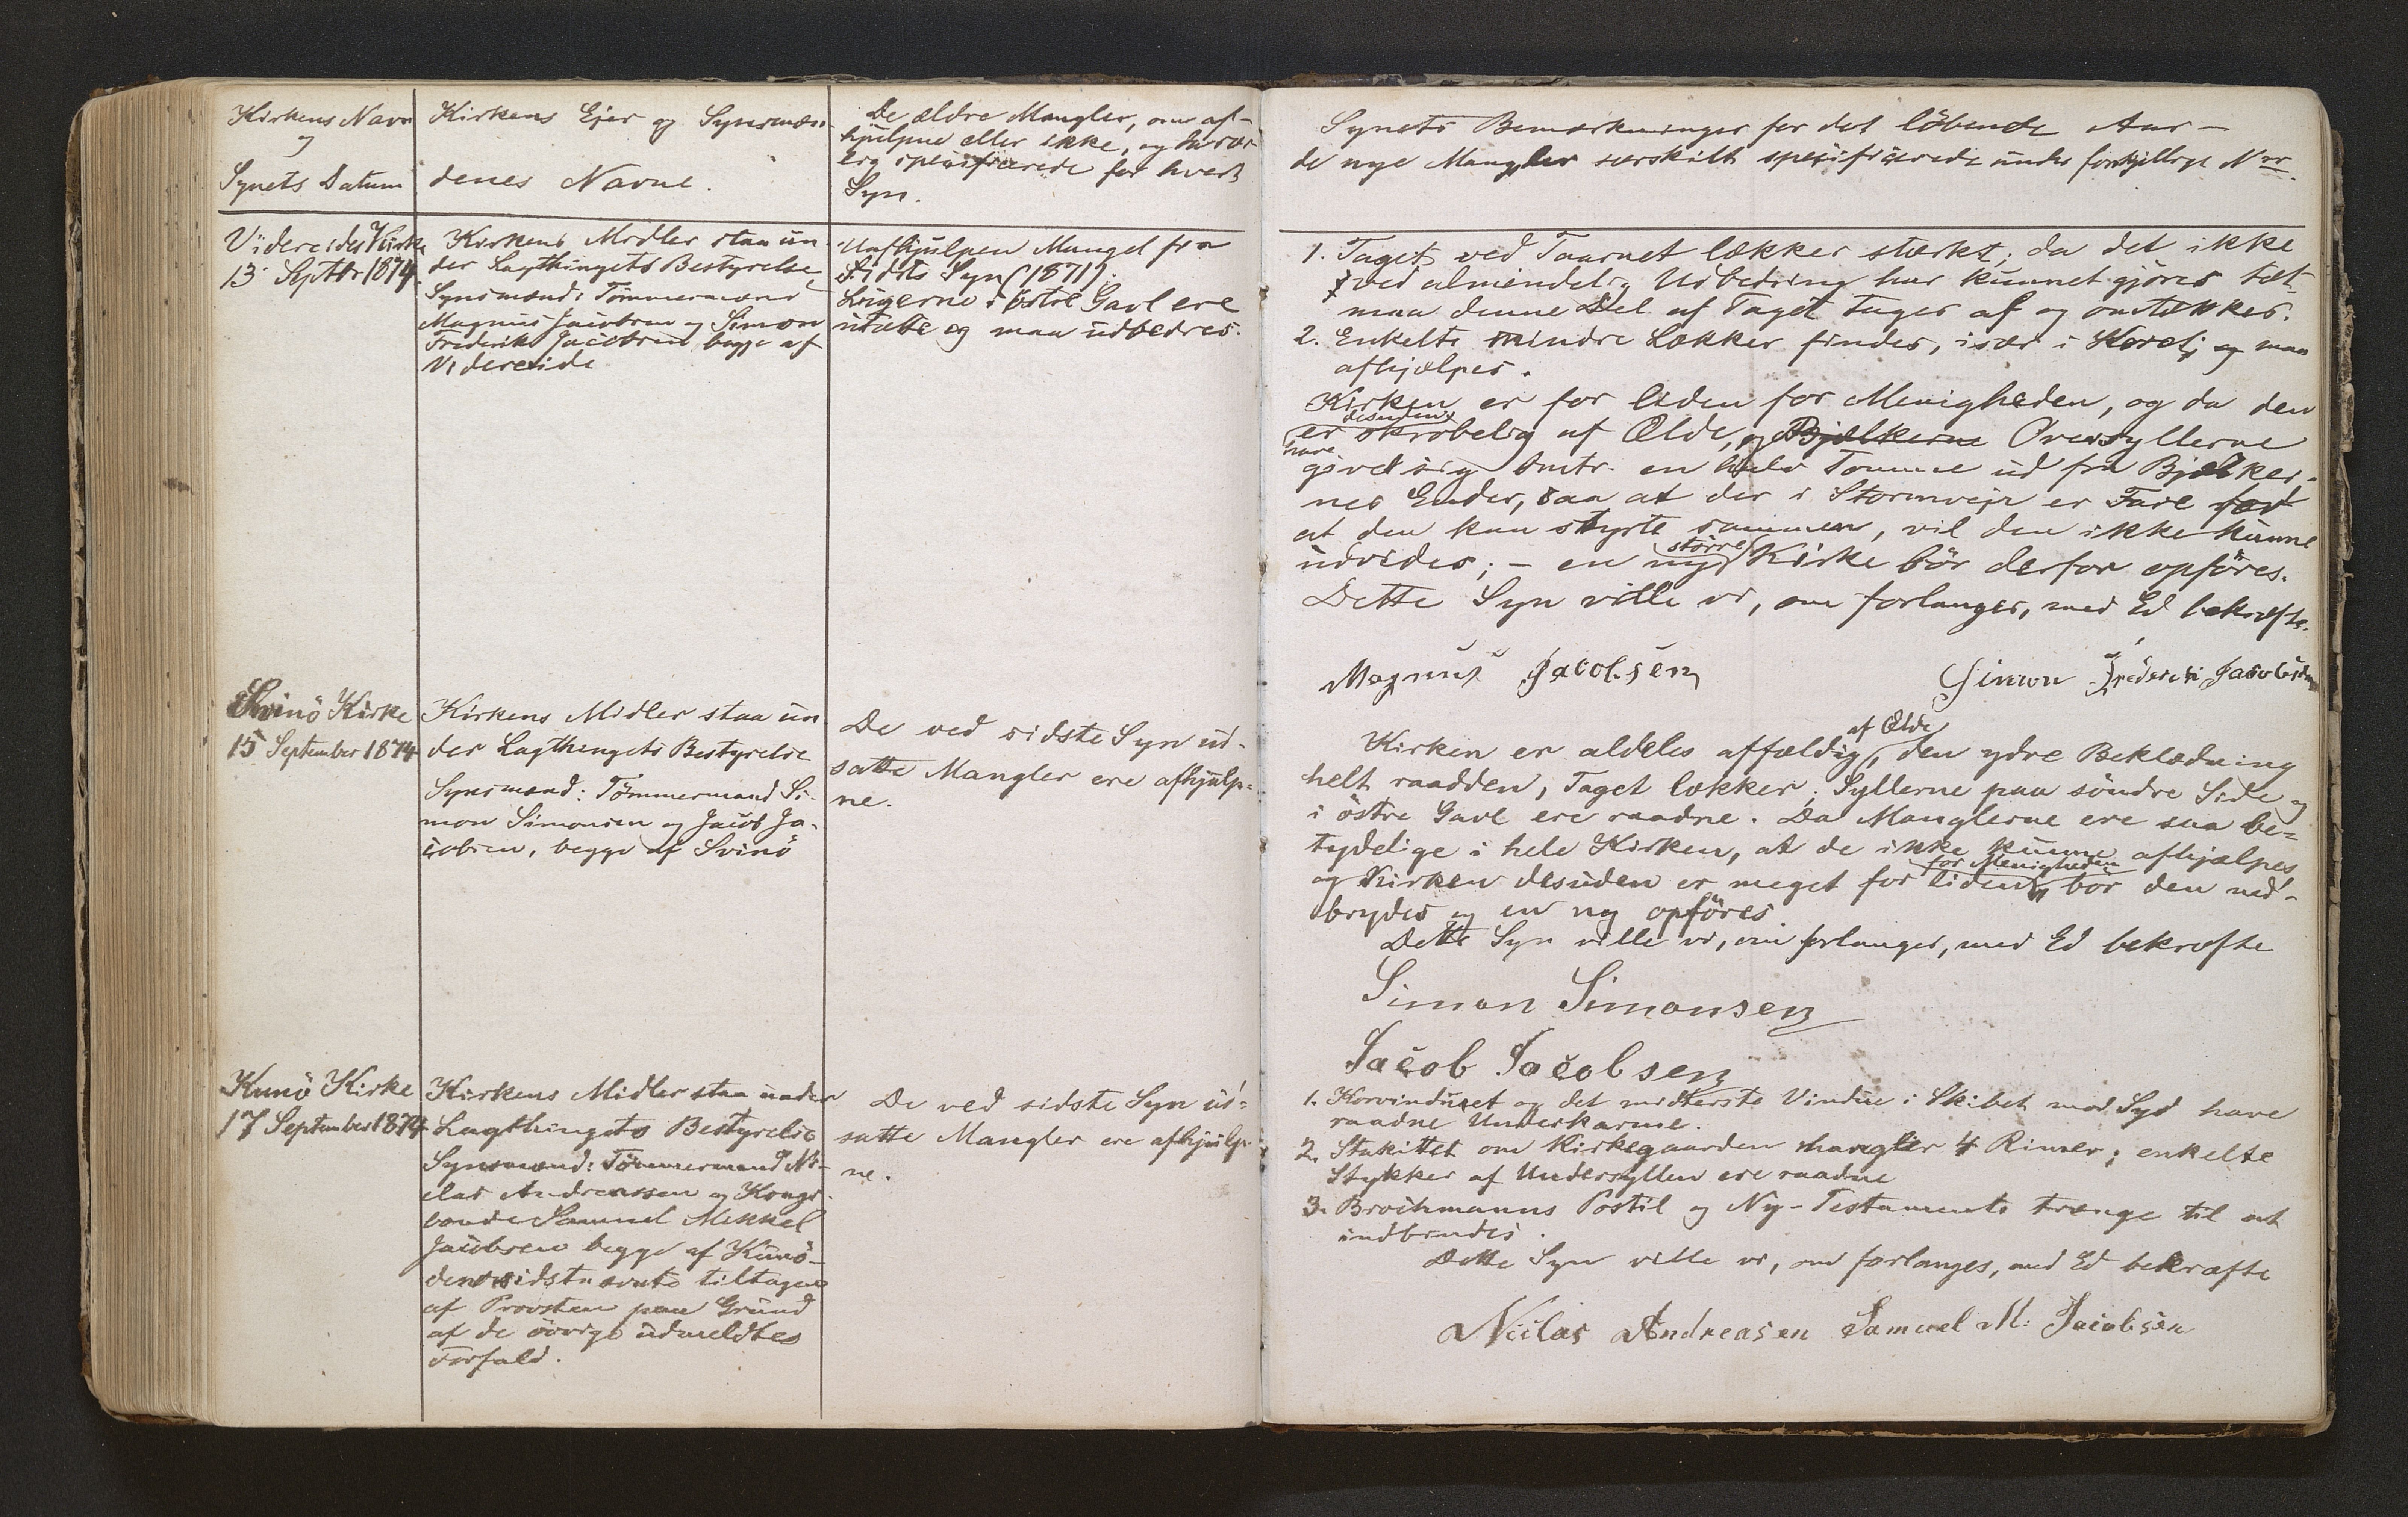 Kirkens Navn
og
Synets Datum
Kirkens Ejer og Synsmæn-
denes Navne.
De ældre Mangler, om af-
hjulpne eller ikke, og hvær
lig specificerede for hvert
Syn.
Videreides Kirke
13 Septbr 1874
Kirkens Midler staa un-
der Lagthingets Bestyrelse
Synsmænd: Tömmermænd
Magnus Jacobsen og Simon
Frederik Jacobsen begge af
Videreide
Uafhjulpen Mangel fra
Sidste Syn (1871).
Lugerne i östre Gavl ere
utætte og maa udbedres.
Svinö Kirke
15 September 1874
Kirkens Midler staa un
der Lagthingets Bestyrelse
Synsmænd: Tömmermand Si-
mon Simonsen og Jacob Ja-
cobsen, begge af Svinö
De ved sidste Syn ud-
satte Mangler ere afhjulp-
ne.
Kunö Kirke
17 September 1874
Kirkens Midler staa under
Lagthingets Bestyrelse
Synsmænd: Tömmermand Ni-
clas Andreassen og Kongs-
bonde Samuel Mikkel
Jacobsen begge af Kunö-
den sidstnævnte tiltagen
af Provsten paa Grund
af de övrige udmeldtes
Forfald.
De ved sidste Syn ud-
satte Mangler ere afhjulp-
ne.
Synets Bemærkninger for det löbende Aar-
de nye Mangler særskilt specificerede under forskjellige Nor.
1. Taget ved Taarnet lækker stærkt; da det ikke
ved almindelig Udbedring har kunnet gjöres tæt
maa denne Del af Taget tages af og omtækkes.
2. Enkelte mindre Lækker findes, især i Koret; og maa
afhjælpes.
Kirken er for liden for Menigheden, og da den
desuden
er skröbelig af Ælde, og Bjælkerne Oversyllerne
have
givet sig omtr. en halv Tomme ud fra Bjælker-
nes Ender, saa at der i Stormvejr er Fare for
at den kan styrte sammen, vil den ikke kunne
större
udvides; - en ny Kirke bör derfor opföres.
Dette Syn ville vi, om forlanges, med Ed bekræfte.
Magnus Jacobsen
Simon Frederik Jacobsen
af Ælde
Kirken er aldeles affældig, den ydre Beklædning
helt raadden, Taget lækker; Syllerne paa söndre Side og
i östre Gavl ere raadne. Da Manglerne ere saa be-
tydelige i hele Kirken, at de ikke kunne afhjælpes,
for Menigheden
og Kirken desuden er meget for liden, bör den ned-
brydes og en ny opföres.
Dette Syn ville vi, om forlanges, med Ed bekræfte
Simon Simonsen
Jacob Jacobsen
1. Korvinduet og det midterste Vindue i Skibet mod Syd have
raadne Underkarme.
2. Stakittet om Kirkegaarden mangler 4 Rimer; enkelte
Stykker af Undersyllen ere raadne
3. Brochmanns Postil og Ny-Testamente trænge til at
indbindes.
Dette Syn ville vi, om forlanges, med Ed bekræfte
Niclas Andreasen Samuel M: Jacobsen